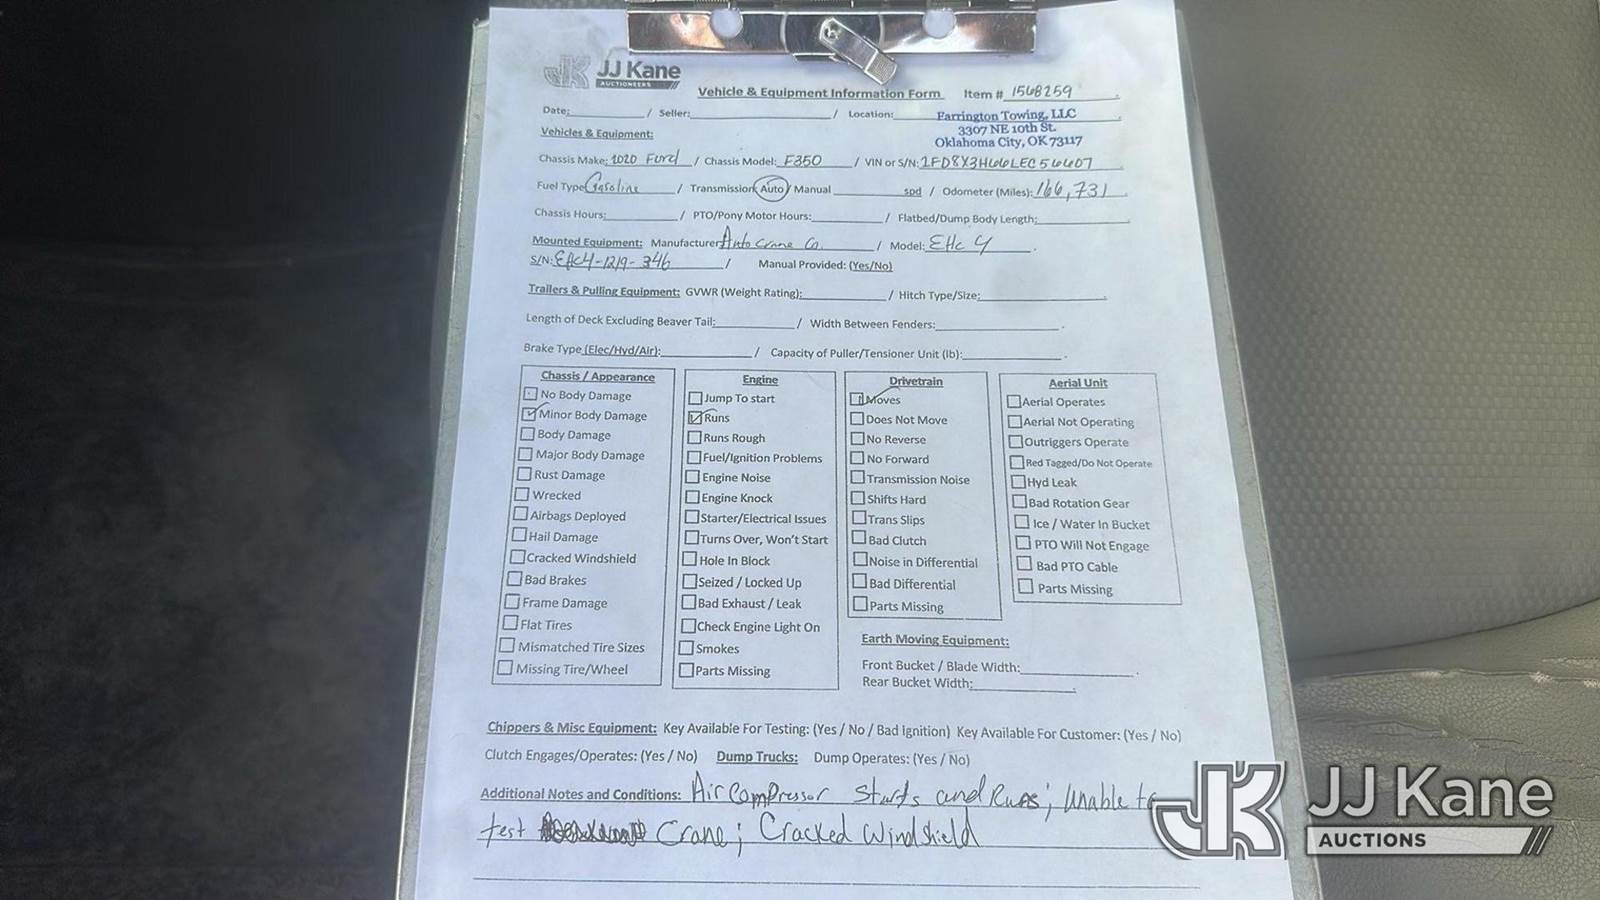 JJ Kane
AUCTIONEERS
Vehicle & Equipment Information Form Item # 1568259
Date: / Seller: / Location: Earrington Towing, LLC
3307 NE 10th St.
Oklahoma City, OK 73117
Vehicles & Equipment:
Chassis Make: 2020 Ford / Chassis Model: F350 / VIN or S/N: 1FD8X3H66LEC56607
Fuel Type Gasoline / Transmission: Auto / Manual spd / Odometer (Miles): 166,731
Chassis Hours: / PTO/Pony Motor Hours: / Flatbed/Dump Body Length:
Mounted Equipment: Manufacturer Auto Crane Co. / Model: EHC 4
S/N: EHC4-1219-346 / Manual Provided: (Yes/No)
Trailers & Pulling Equipment: GVWR (Weight Rating): / Hitch Type/Size:
Length of Deck Excluding Beaver Tail: / Width Between Fenders:
Brake Type (Elec/Hyd/Air): / Capacity of Puller/Tensioner Unit (lb):
Chassis / Appearance
No Body Damage
Minor Body Damage
Body Damage
Major Body Damage
Rust Damage
Wrecked
Airbags Deployed
Hail Damage
Cracked Windshield
Bad Brakes
Frame Damage
Flat Tires
Mismatched Tire Sizes
Missing Tire/Wheel
Engine
Jump To start
Runs
Runs Rough
Fuel/Ignition Problems
Engine Noise
Engine Knock
Starter/Electrical Issues
Turns Over, Won't Start
Hole In Block
Seized / Locked Up
Bad Exhaust / Leak
Check Engine Light On
Smokes
Parts Missing
Drivetrain
Moves
Does Not Move
No Reverse
No Forward
Transmission Noise
Shifts Hard
Trans Slips
Bad Clutch
Noise in Differential
Bad Differential
Parts Missing
Aerial Unit
Aerial Operates
Aerial Not Operating
Outriggers Operate
Red Tagged/Do Not Operate
Hyd Leak
Bad Rotation Gear
Ice / Water In Bucket
PTO Will Not Engage
Bad PTO Cable
Parts Missing
Earth Moving Equipment:
Front Bucket / Blade Width:
Rear Bucket Width:
Chippers & Misc Equipment: Key Available For Testing: (Yes / No / Bad Ignition) Key Available For Customer: (Yes / No)
Clutch Engages/Operates: (Yes / No) Dump Trucks: Dump Operates: (Yes / No)
Additional Notes and Conditions: Air Compressor Starts and Runs; Unable to
test Crane; Cracked Windshield
JJ Kane
AUCTIONS